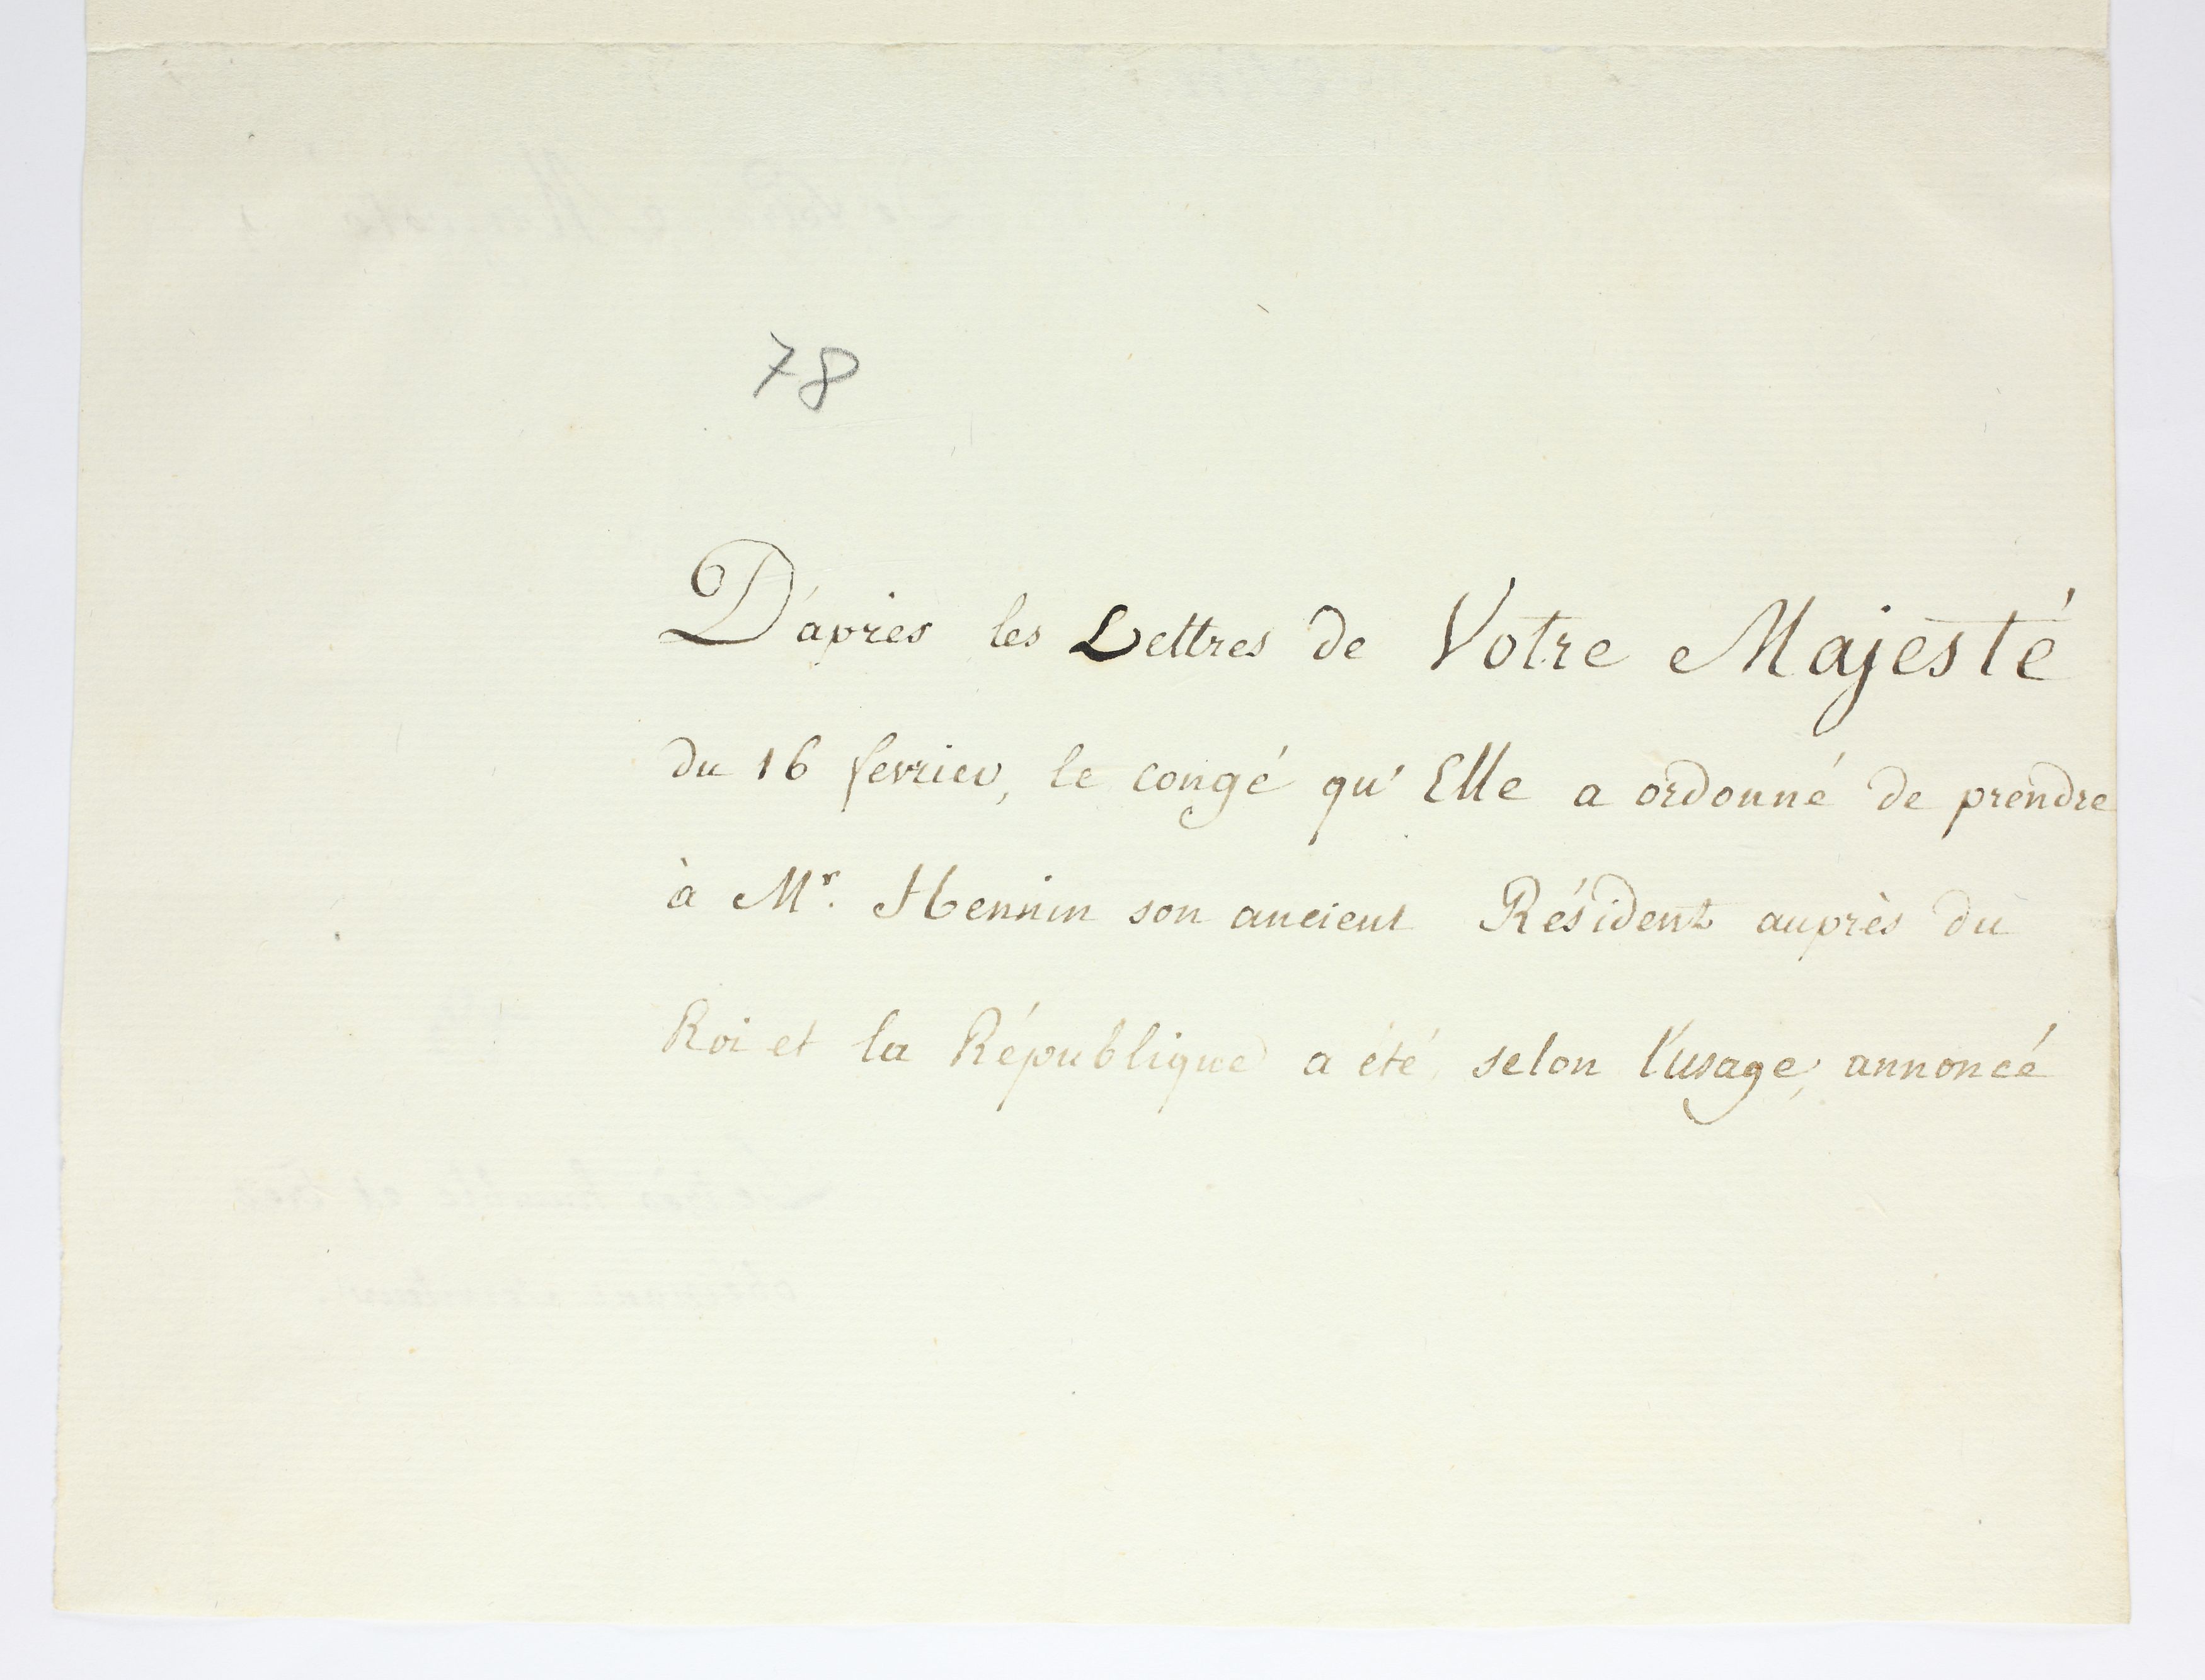 78
D'après les Lettres de Votre Majesté
du 16 fevrier, le congé qu'Elle a ordonné de prendre
à Mr. Hennin son ancient Résident auprès du
Roi et la République a été, selon l'usage, annoncé